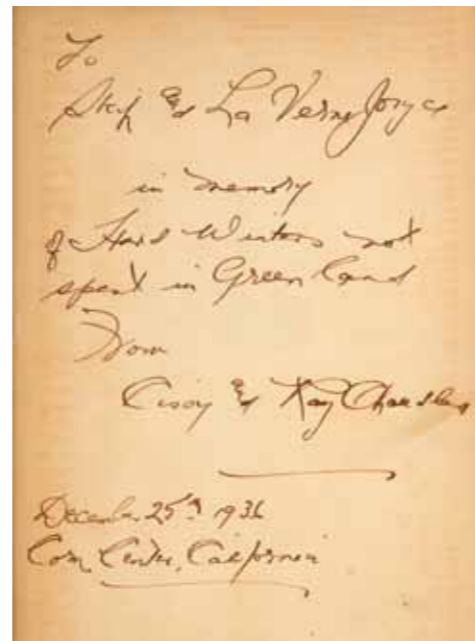 To
Skip & La Verne Joyce
in memory
of Hard Winters not
spent in Greenland
From
Cissy & Ray Chandler
December 25th 1936
California